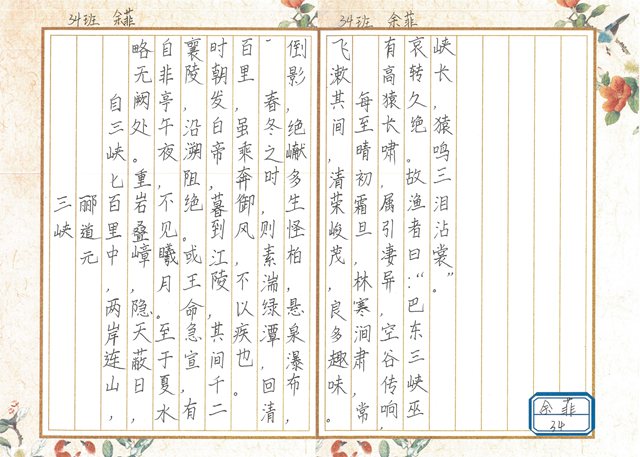 34班 余菲
34班 余菲
三峡
郦道元
自三峡七百里中，两岸连山，
略无阙处。重岩叠嶂，隐天蔽日，
自非亭午夜，不见曦月。至于夏水
襄陵，沿溯阻绝。或王命急宣，有
时朝发白帝，暮到江陵，其间千二
百里，虽乘奔御风，不以疾也。
春冬之时，则素湍绿潭，回清
倒影，绝巘多生怪柏，悬泉瀑布，
飞漱其间，清荣峻茂，良多趣味。
每至晴初霜旦，林寒涧肃，常
有高猿长啸，属引凄异，空谷传响，
哀转久绝。故渔者曰：“巴东三峡巫
峡长，猿鸣三泪沾裳”。
余菲
34